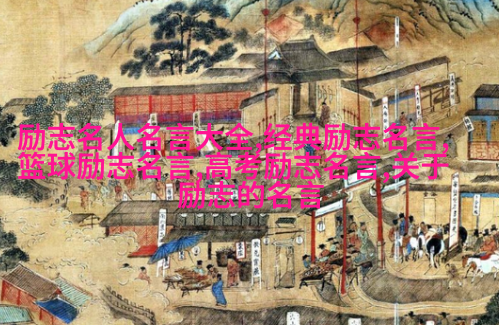 励志名人名言大全,经典励志名言,
篮球励志名言,高考励志名言,关于
励志的名言